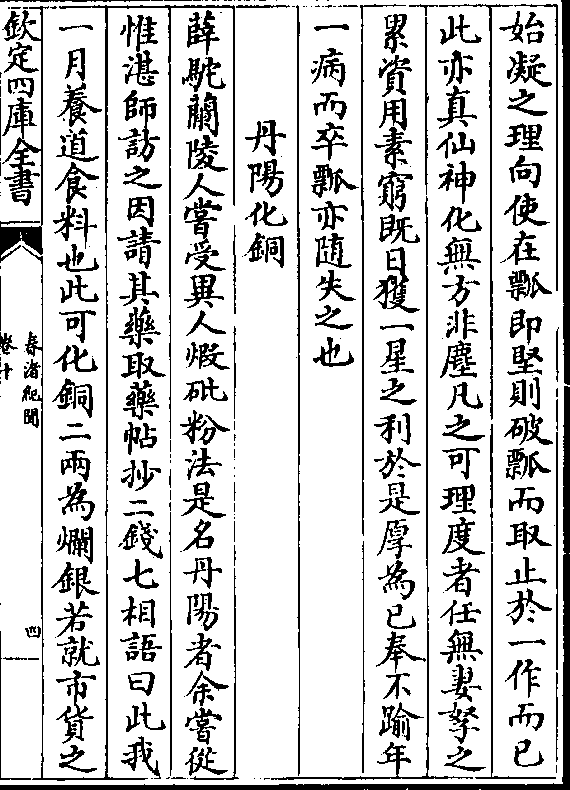 始凝之理向使在瓢即堅則破瓢而取止於一作而已
此亦真仙神化無方非塵凡之可理度者任無妻孥之
累資用素窮既日獲一星之利於是厚為已奉不踰年
一病而卒瓢亦随失之也
丹陽化銅
薛駝蘭陵人嘗受異人煅砒粉法是名丹陽者余嘗從
惟湛師訪之因請其藥取藥帖抄二錢七相語曰此我
一月養道食料也此可化銅二兩為爛銀若就市貨之
欽定四庫全書
春渚紀聞
卷十
四